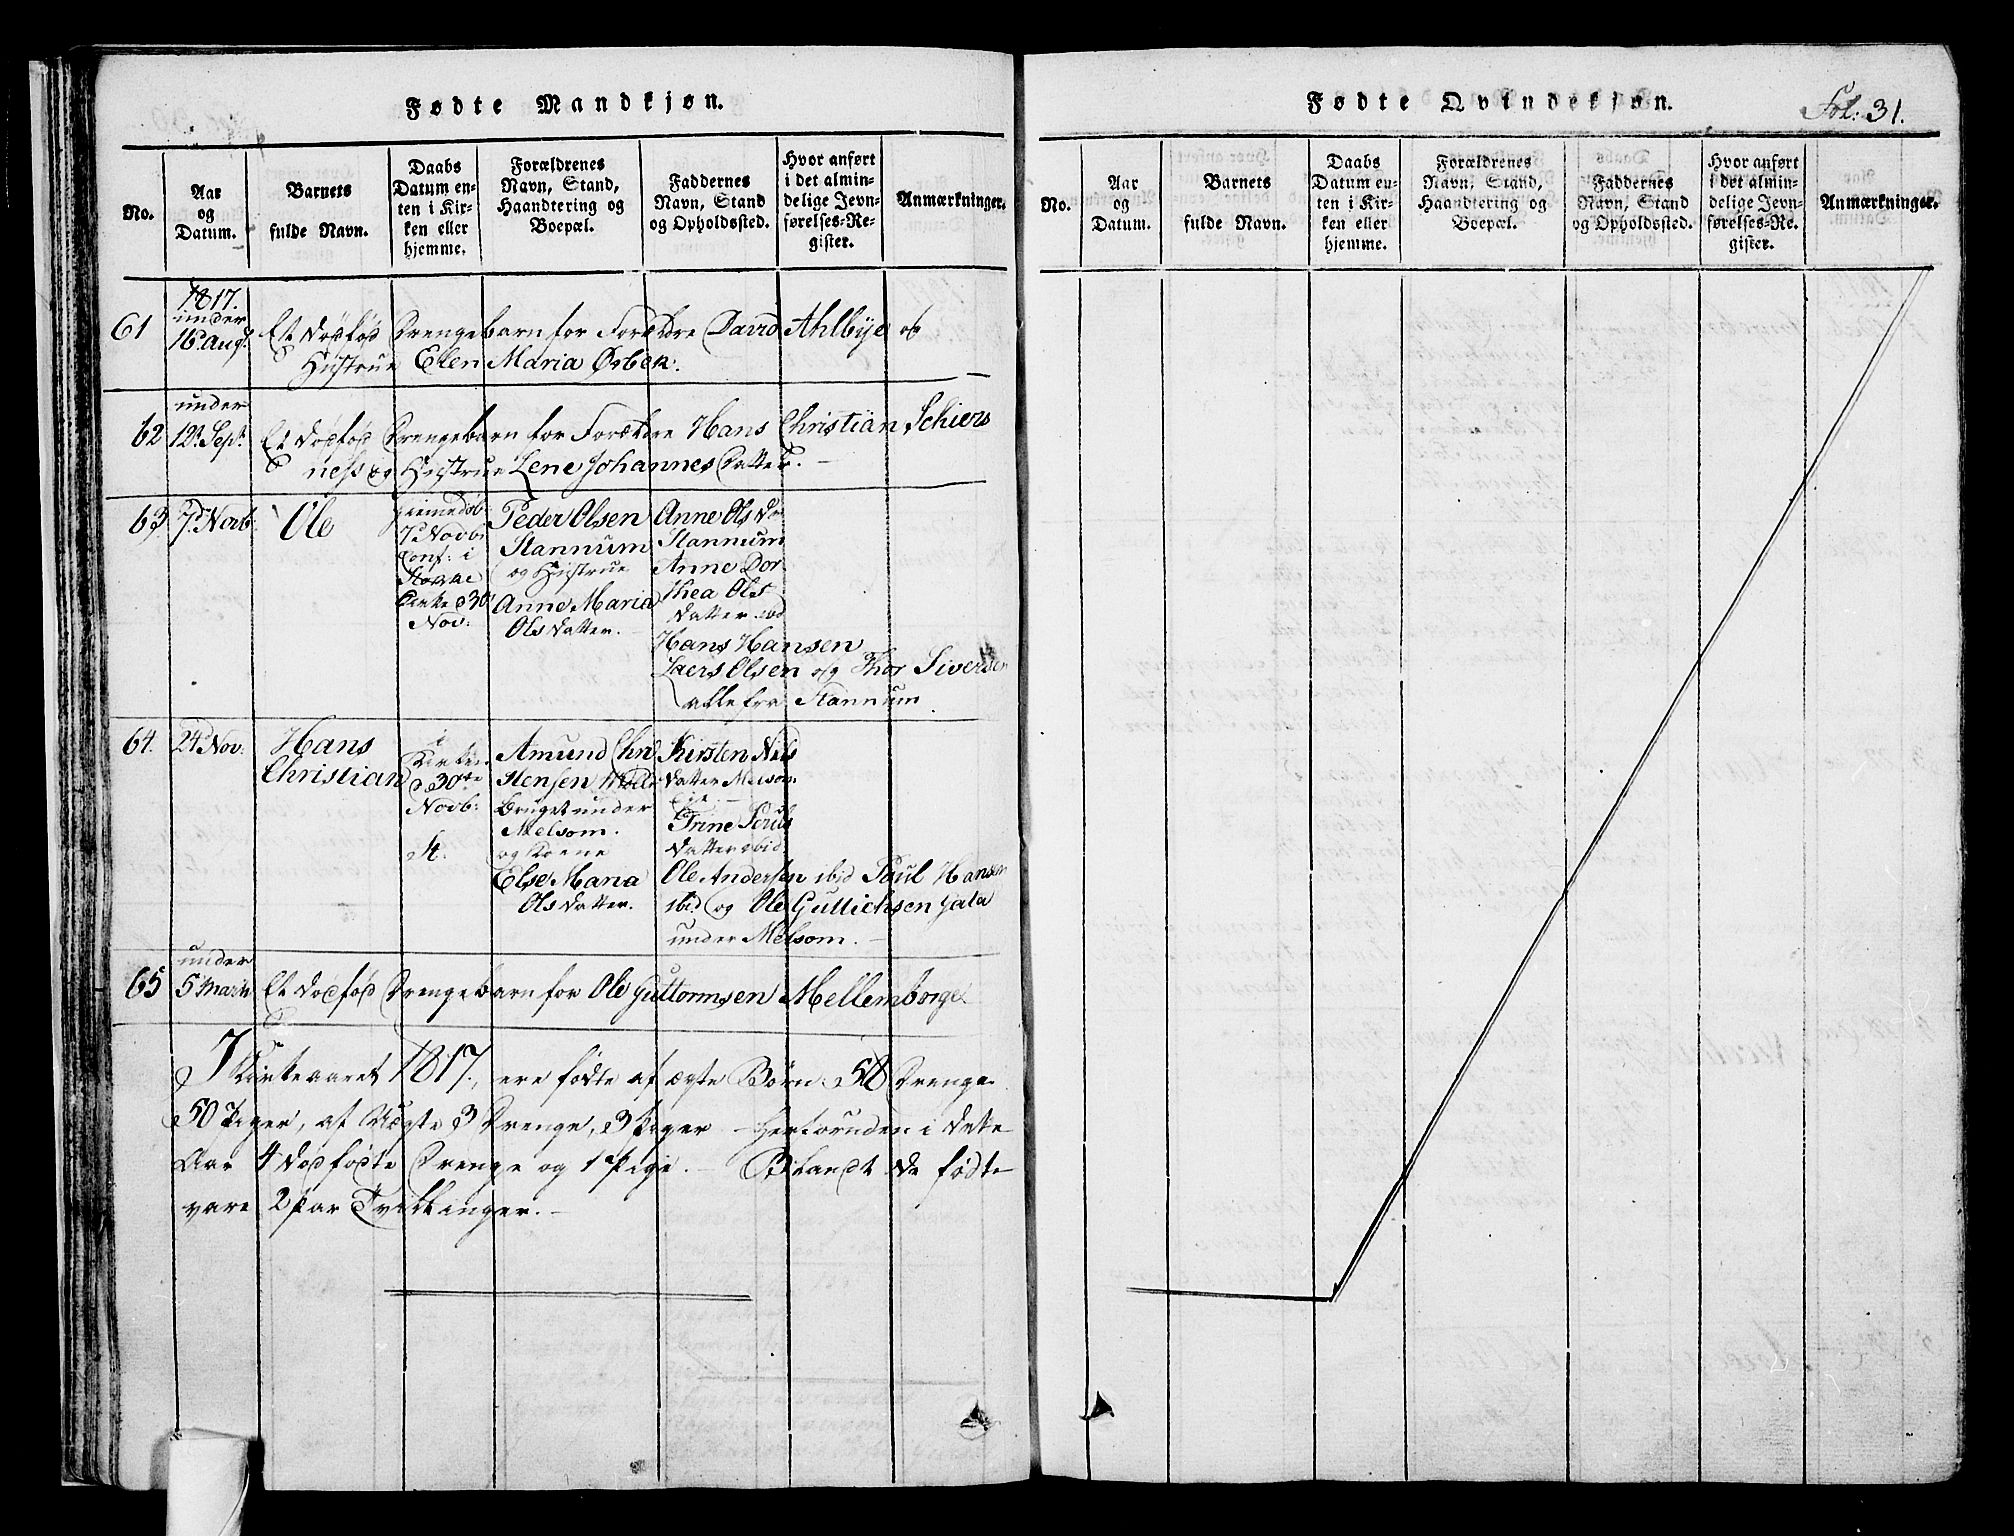 Fødte Mandkjøn.
No.
Aar
og
Datum.
Barnets
fulde Navn.
Daabs
Datum en-
ten i Kir-
ken eller
hjemme.
Forældrenes
Navn, Stand,
Haandtering og
Boepæl.
Faddernes
Navn, Stand
og Opholdssted.
Hvor anført
i det almin-
delige Jevn-
førelses-Re-
gister.
Anmærkninger.
61
1817.
under
16 Aug.
Et dødfød Drengebarn for Forældre David Ahlbye og
Hustrue Elen Maria Ørbek.
62
under
12t Sept.
Et dødfød Drengebarn for Forældre Hans Christian Schiers
ness og Hustrue Lene Johannes Datter. —
63
7d Novb:
Ole
Hiemedøb:
7d Novb:
Conf: i
Stokke
Kirke d 30t
Nov:
Peder Olsen
Stannum
og Hustrue
Anne Maria
Ols Datter. —
Anne Ols Dr
Stannum
Anne Dor
thea Ols
datter ibd
Hans Hansen
Laers Olsen og Thor Siversen
alle fra Stannum
64.
24 Nov:
Hans
Christian
i
Kirken
d 30te
Novb:
St.
Amund Chri
stensen Mølle
bruget under
Melsom.
og Kone
Else Maria
Ols datter.
Kirsten Niels
datter Melsom
Eje. —
Trine Pouls
datter ibid
Ole Andersen ibid Paul Hansen
ibid og Ole Gullichsen Hala
under Melsom. —
65
under
5 Martii
Et dødfød Drengebarn for Ole Guttormsen Mellemborge
I Kirkeaaret 1817., ere fødte af ægte Børn: 58 Drenge
50 Piger, af Uægte 3 Drenge, 3 Piger — herforuden i dette
Aar 4 dødfødte Drenge og 1 Pige. — Blandt de fødte
vare 2 Par Tvillinger. —
Fødte Qvindekjøn.
Fol: 31.
No.
Aar
og
Datum.
Barnets
fulde Navn.
Daabs
Datum en-
ten i Kir-
ken eller
hjemme.
Forældrenes
Navn, Stand,
Haandtering og
Boepæl.
Faddernes
Navn, Stand
og Opholdssted.
Hvor anført
i det almin-
delige Jevn-
førelses-Re-
gister.
Anmærkninger.